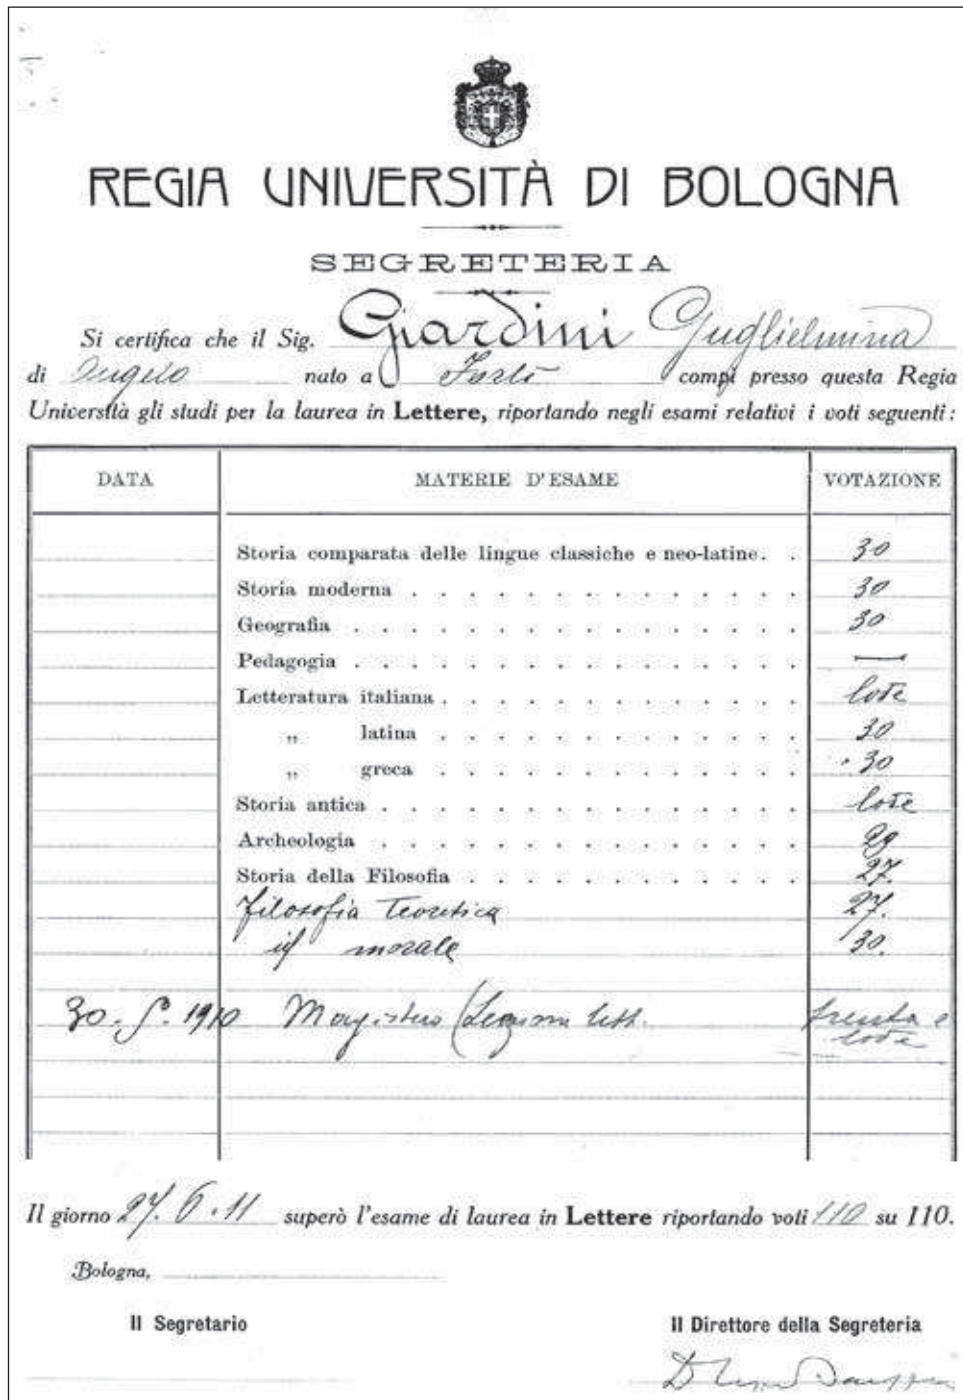 REGIA UNIVERSITÀ DI BOLOGNA
SEGRETERIA
Si certifica che il Sig. Giardini Guglielmina
di Angelo nato a Forlì compì presso questa Regia
Università gli studi per la laurea in Lettere, riportando negli esami relativi i voti seguenti:
DATA MATERIE D'ESAME VOTAZIONE
Storia comparata delle lingue classiche e neo-latine. . 30
Storia moderna . . . . . . . . . . . . . . 30
Geografia . . . . . . . . . . . . . . . . 30
Pedagogia . . . . . . . . . . . . . . . . —
Letteratura italiana . . . . . . . . . . . . . lode
„ latina . . . . . . . . . . . . . 30
„ greca . . . . . . . . . . . . . 30
Storia antica . . . . . . . . . . . . . . . lode
Archeologia . . . . . . . . . . . . . . . 29
Storia della Filosofia . . . . . . . . . . . . 27.
filosofia Teoretica 27.
id morale 30.
30. 1910 Magistero (Lezioni lett. trenta e
lode
Il giorno 27. 6. 11 superò l'esame di laurea in Lettere riportando voti 110 su 110.
Bologna,
Il Segretario Il Direttore della Segreteria